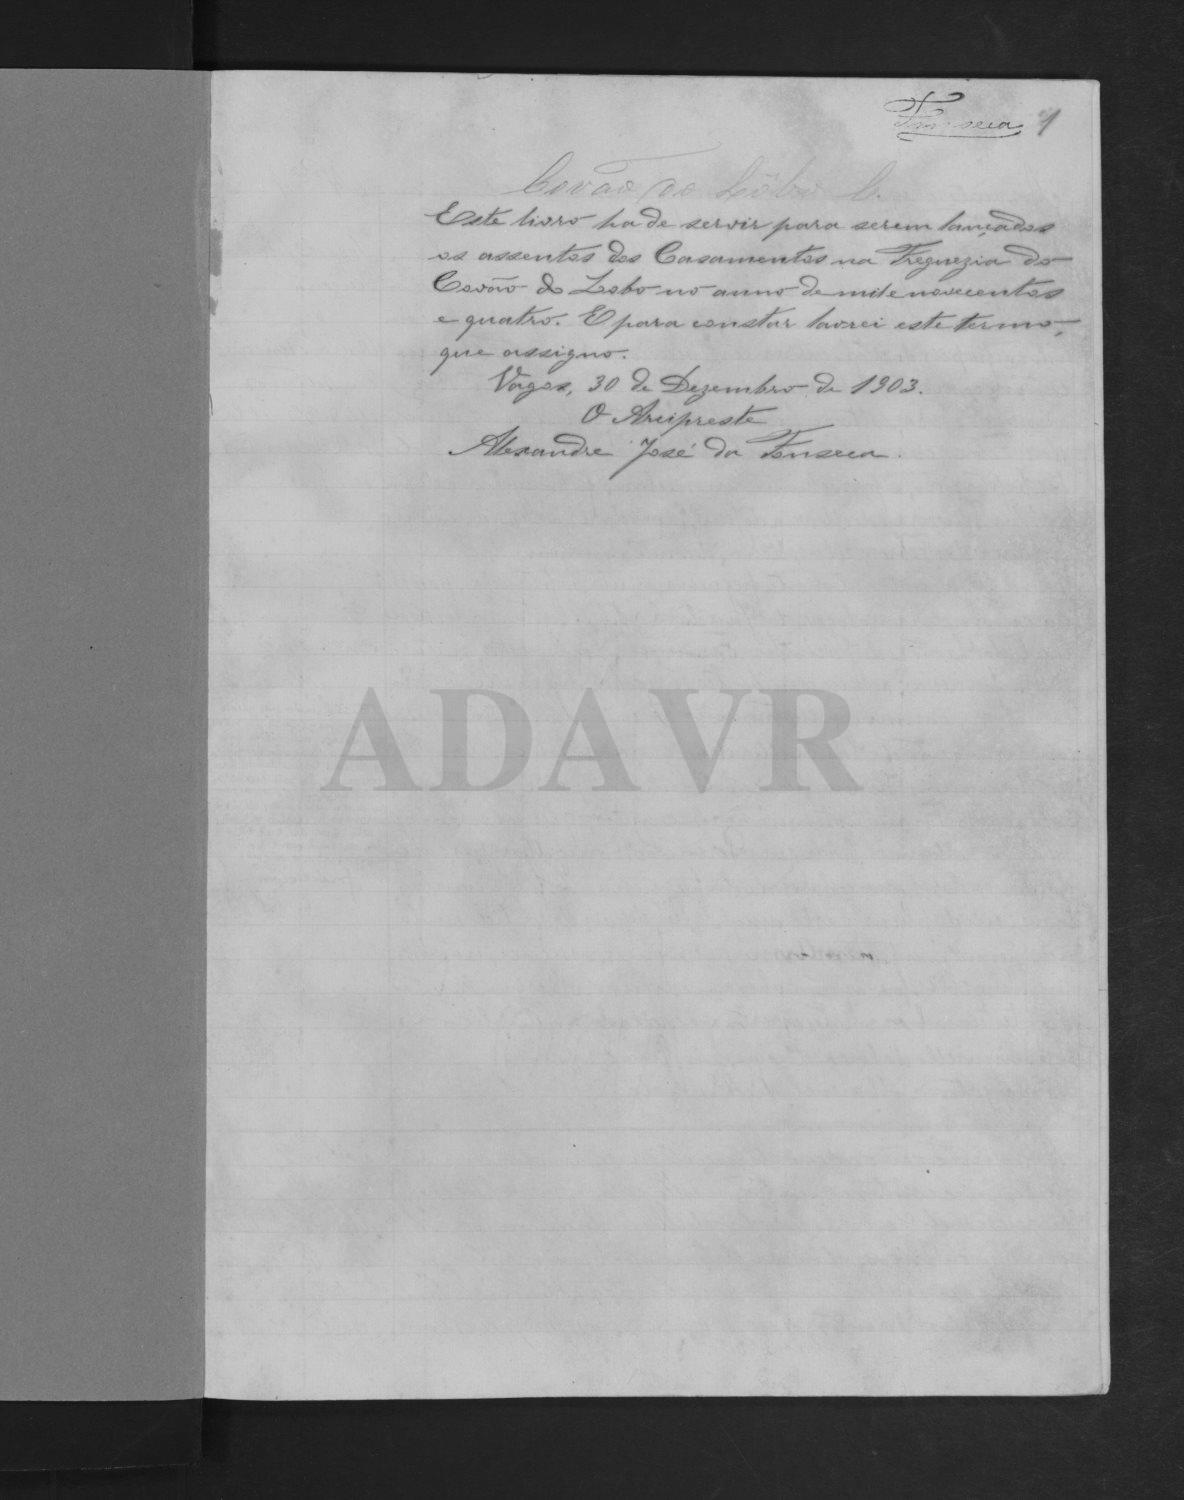 Fonseca 1
Covão do Lôbo C.
Este livro ha de servir para serem lançados
os assentos dos Casamentos na Freguezia do
Covão do Lobo no anno de mil e novecentos
e quatro. E para constar lavrei este termo,
que assigno.
Vagos, 30 de Dezembro de 1903.
O Arcipreste
Alexandre José da Fonseca.
ADAVR